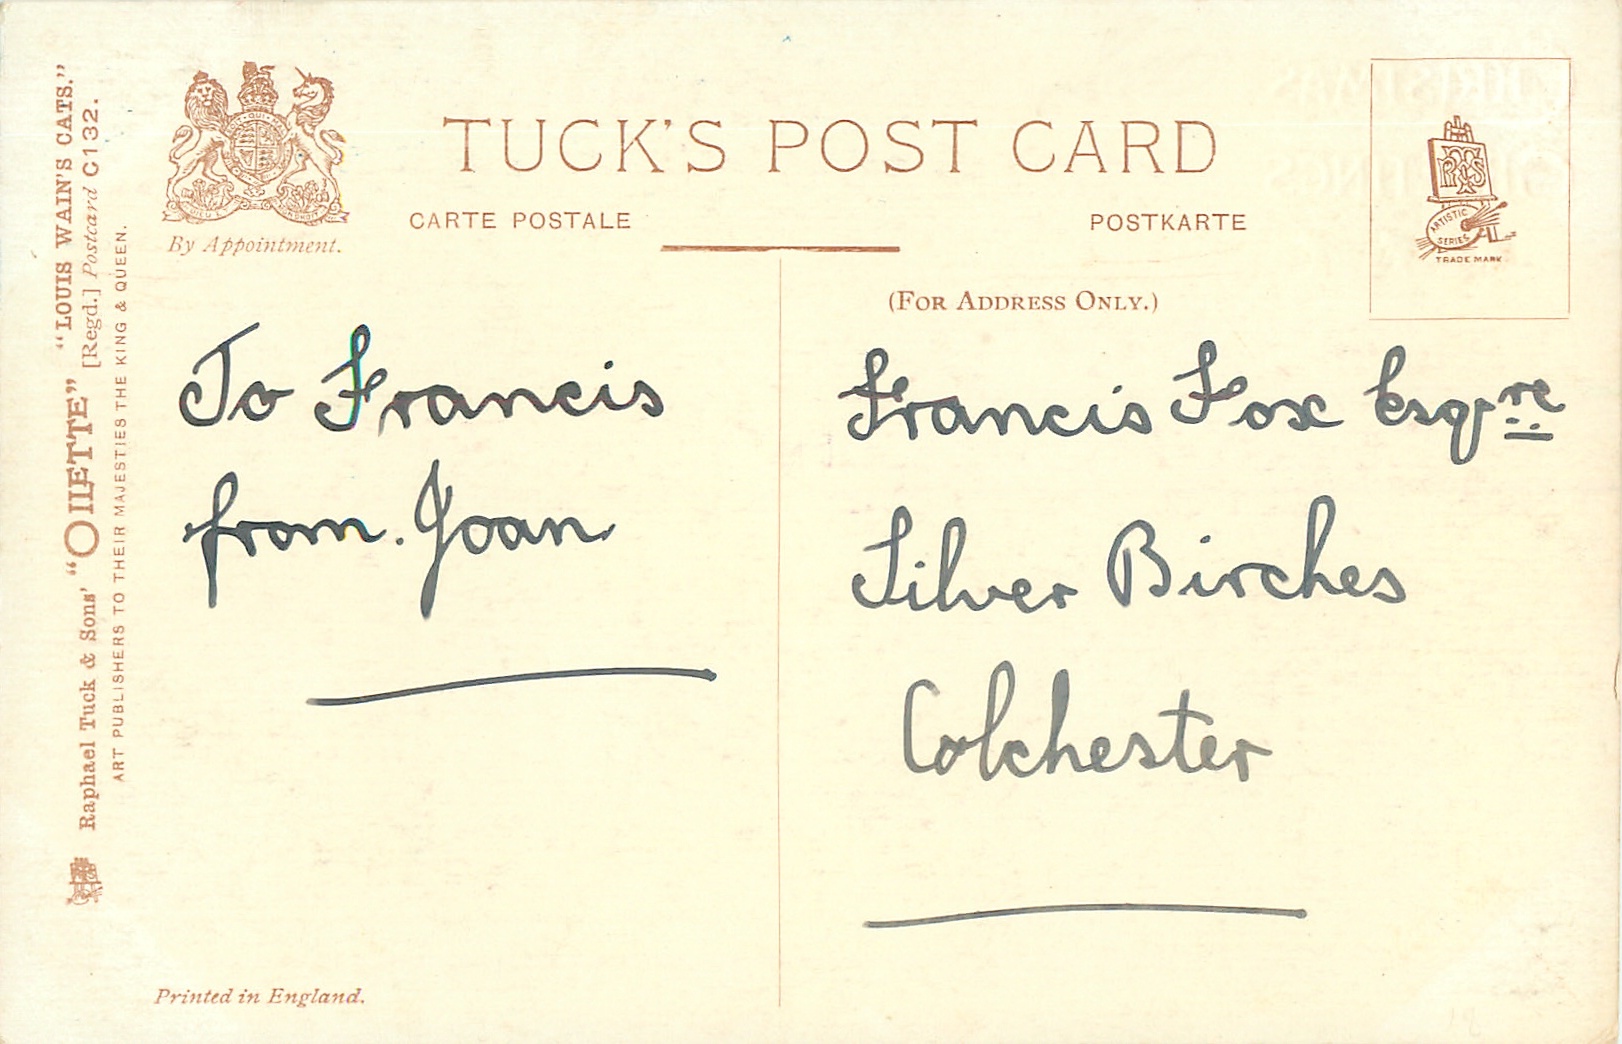 "LOUIS WAIN'S CATS."
Raphael Tuck & Sons' "OILETTE" [Regd.] Postcard C132.
ART PUBLISHERS TO THEIR MAJESTIES THE KING & QUEEN.
By Appointment.
TUCK'S POST CARD
CARTE POSTALE
POSTKARTE
(FOR ADDRESS ONLY.)
ARTISTIC
SERIES
TRADE MARK
To Francis
from. Joan
Francis Fox Esqre
Silver Birches
Colchester
Printed in England.